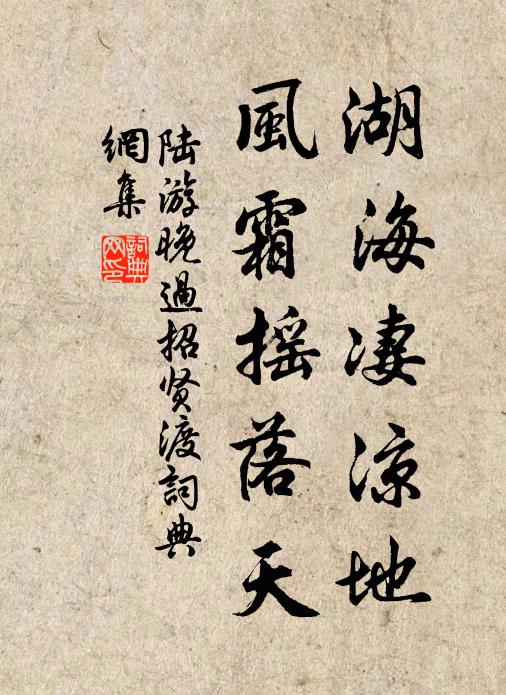 湖海凄凉地
風霜摇落天
陆游晚過招贤渡詞典
網集
詞典
网印